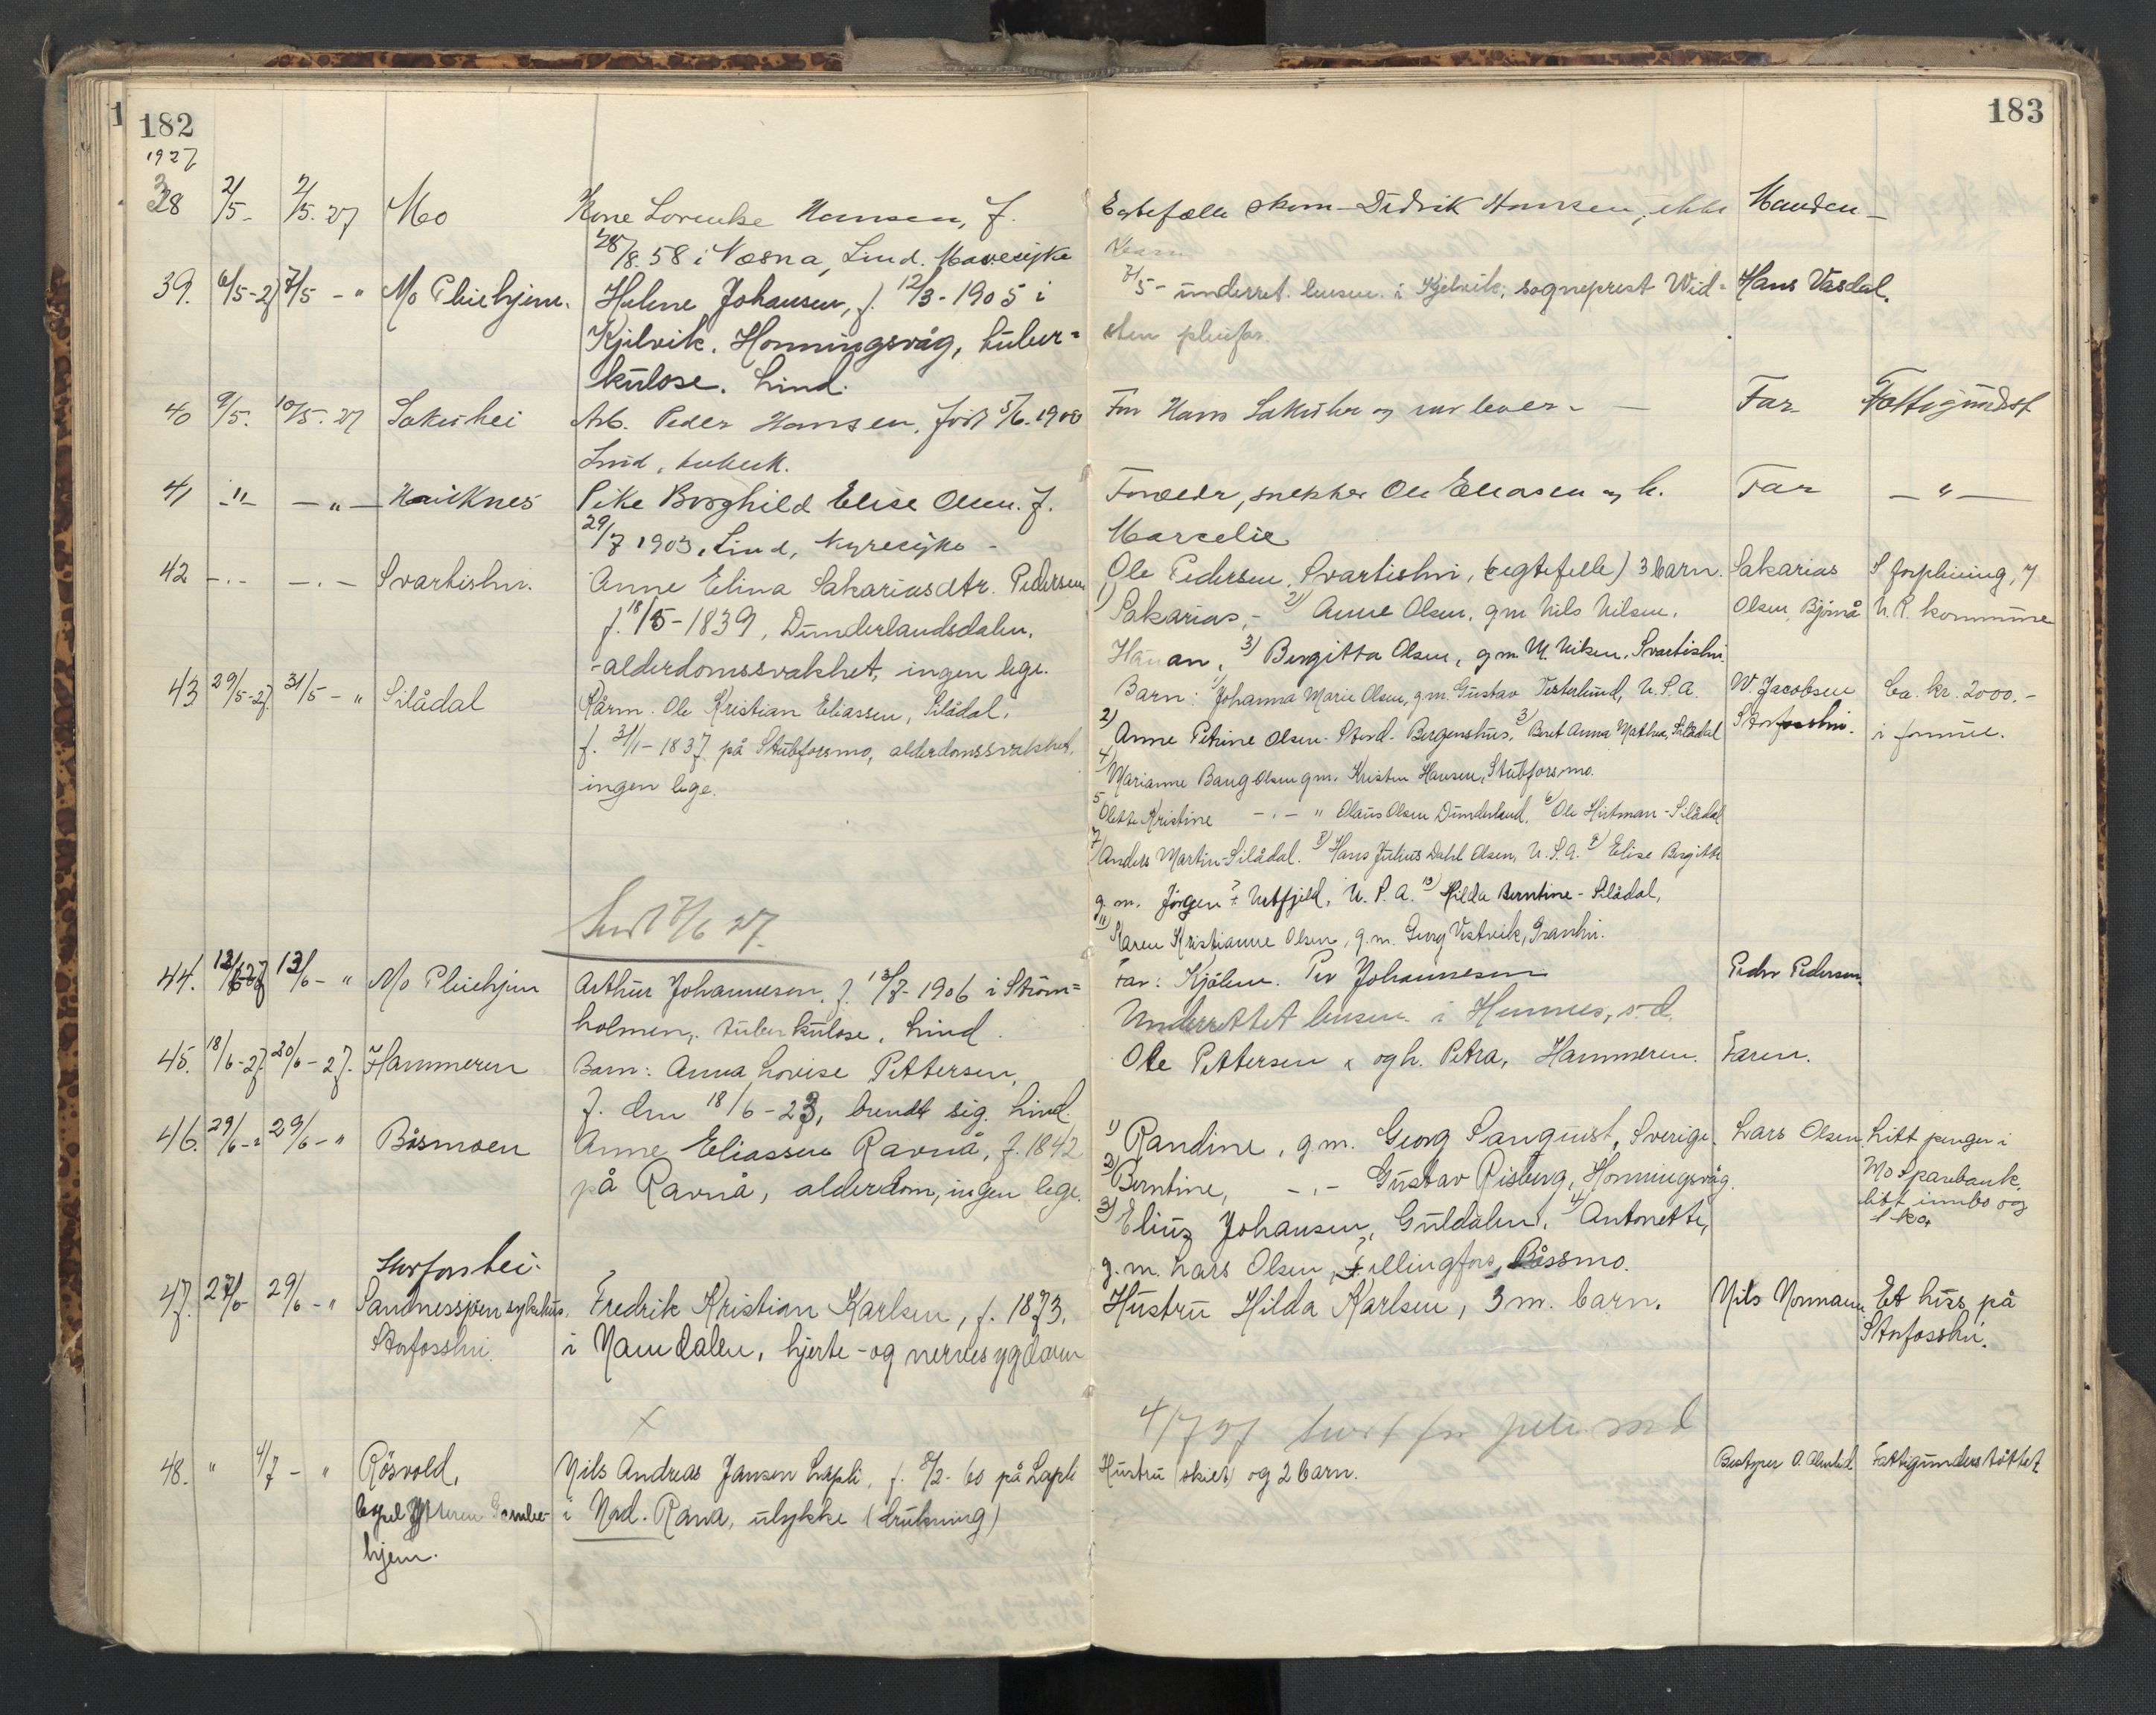 182
183
1927
38 2/5- 2/5. 27 Mo Kone Lorentse Hansen, f. Ektefælle skom. Didrik Hansen, ikke Manden
28/8. 58 i Næsna, Lind. Mavesyke barn
39. 6/5-27 7/5 - " Mo Pleiehjem. Helene Johansen, f. 12/3-1905 i 7/5- underret. lensm. i Kjelvik, sogneprest Wid= Hans Vasdal.
Kjelvik. Honningsvåg, tuber= sten pleiefar.
kulose. Lind.
40 9/5. 10/5. 27 Arb. Peder Hansen, født 5/6. 1900 Far Hans lever - Far Fattigundst
Lind, tuberk.
41 -"- -"- Hauknes Pike Borghild Elise Olsen. f. Foreldr, snekker Ole Eliasen og h. Far - " -
29/7 1903, Lind, Nyresyke - Marcelie
42 -.- -.- Svartishei. Anne Elina Sakariasdtr. Pedersen Ole Pedersen, Svartishei, (egtefelle) 3 barn. Sakarias S. forpleining, 7
f. 18/5-1839, Dunderlandsdalen, 1) Sakarias, - 2) Anne Olsen, gm Nils Nilsen, Olsen, Bjørnå N. R. kommune
- alderdomssvakhet, ingen lege. 3) Bergitta Olsen, gm. N. Nilsen, Svartishei
43 29/5-27. 31/5 - " Silådal Kårm. Ole Kristian Eliassen, Silådal, Barn: 1) Johanna Marie Olsen, gm. Gustav Vesterlund, U.S.A. W. Jacobsen Ca. kr. 2000.-
f. 31/1-1837 på Stubforsmo, alderdomssvakhet, 2) Anne Petrine Olsen - Stord. Bergenshus, 3) Beret Anna Mathea, Silådal Storfosshei. i formue.
ingen lege. 4) Marianne Baug Olsen gm. Kristen Hansen, Stubforsmo.
5 Olette Kristine -.- " Olaus Olsen Dunderland, 6) Ole Hirtman - Silådal
7) Anders Martin - Silådal. 8) Hans Julius Dahl Olsen, U.S.A. 9) Elise Bergitte
g. m. Jørgen ? Urtfjeld, U.S.A. 10) Hilda Berntine - Silådal,
11) Karen Kristianne Olsen, g.m. Georg Vestvik, Granhei.
Sendt 7/6 27.
44. 12/6-27 13/6 - " Mo Pleiehjem Arthur Johannesen, f. 13/7-1906 i Strøm= Far: Kjølm. Per Johannesen Peder Pedersen
holmen, tuberkulose, Lind. Underrettet lensm. i Hemnes, s.d.
45. 18/6-27. 20/6-27. Hammeren Barn: Anna Lovise Pettersen, Ole Pettersen og h. Petra, Hammeren. Faren.
f. den 18/6-23, brendt sig. Lind.
46. 29/6-" 29/6-" Båsmoen Anne Eliassen Ravnå, f. 1842 1) Randine, g.m. Georg Sanquist, Sverige. Lars Olsen, Litt penger i
på Ravnå, alderdom, ingen lege. 2) Berntine, -.- Gustav Risberg, Honningsvåg. Mo Sparebank,
3) Eliuz Johansen, Guldalen. 4) Antonette, litt innbo og
g.m. Lars Olsen, Fillingfors, Båssmo. 1 ko
Storforshei.
47. 27/6- 29/6 - " Sandnessjøen sykehus. Fredrik Kristian Karlsen, f. 1873. Hustru Hilda Karlsen, 3 m. barn. Nils Normann Et hus på
Storfosshei. i Namdalen, hjerte- og nervesygdom Storfosshei.
x
4/7 27 sendt
48. " 4/7 - " Røsvold, Nils Andreas Jansen Lapli, f. 8/2-60 på Lapli Hustru (skilt) og 2 barn. Bestyrer O. Fattigunderstøttet
Ytteren Gamle- i Nord-Rana, ulykke (drukning)
hjem.